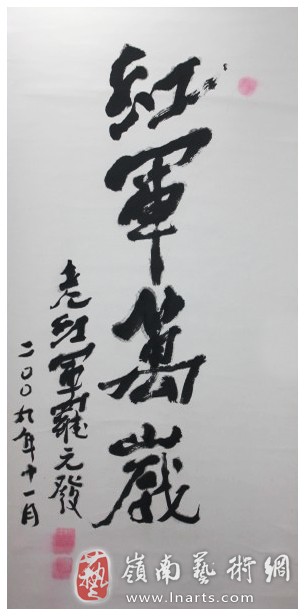 紅軍萬歲
老紅軍羅元發
二〇〇九年十一月
藝 嶺南藝術網
www.lnarts.com